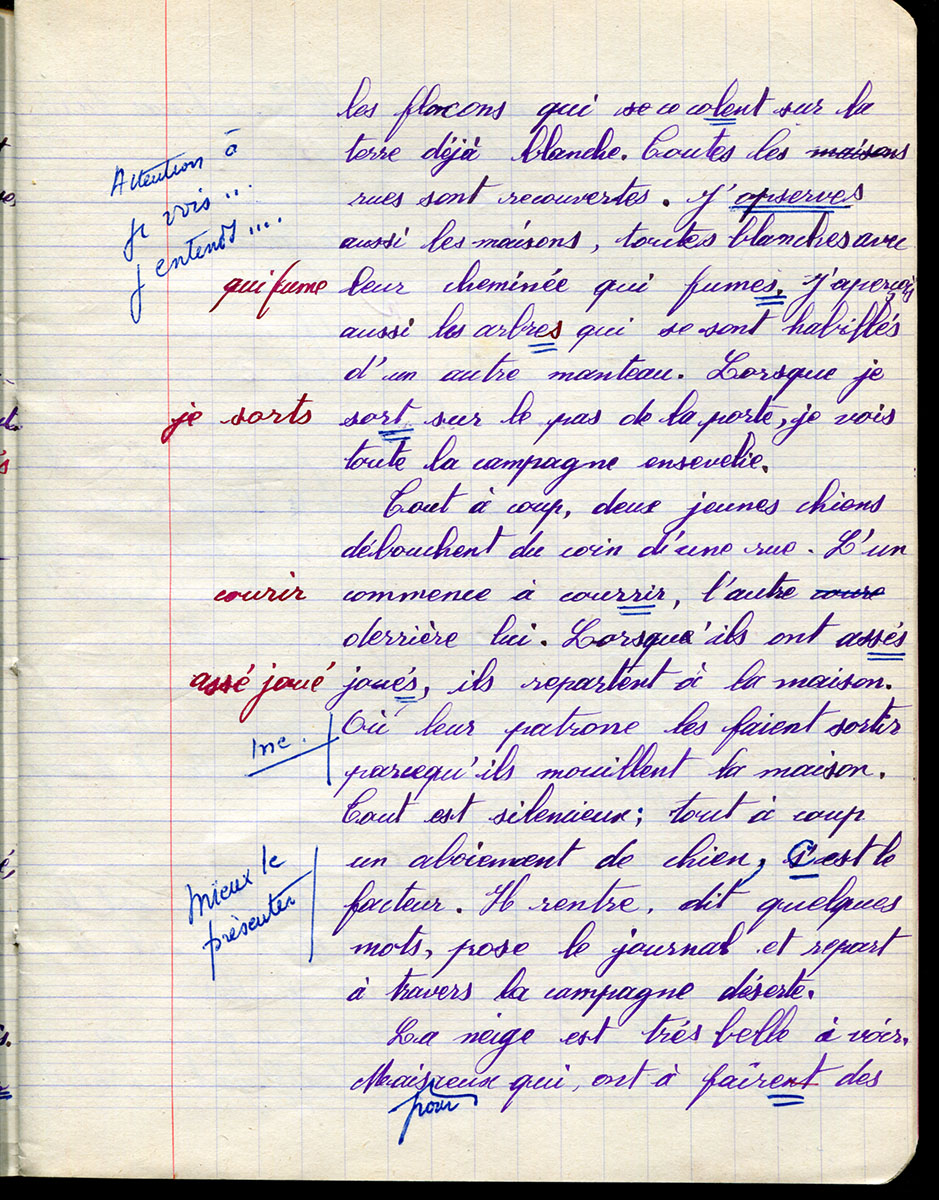 les flocons qui se co colent sur la
terre déjà blanche. Toutes les maisons
rues sont recouvertes. J'apserves
aussi les maisons, toutes blanches avec
leur cheminée qui fumes. J'aperçois
aussi les arbres qui se sont habillés
d'un autre manteau. Lorsque je
sort sur le pas de la porte, je vois
toute la campagne ensevelie.
Tout à coup, deux jeunes chiens
débouchent du coin d'une rue. L'un
commence à courrir, l'autre coure
derrière lui. Lorsqu'ils ont assés
joués, ils repartent à la maison.
Où leur patrone les faient sortir
parcequ'ils mouillent la maison.
Tout est silencieux; tout à coup
un aboiement de chien, C'est le
facteur. Il rentre, dit quelques
mots, pose le journal et repart
à travers la campagne déserte.
La neige est trés belle à voir.
Mais eux qui, ont à fairent des
pour
Attention à
je vois...
j'entends...
qui fume
je sorts
courir
assé joué
Inc.
Mieux le
présenter